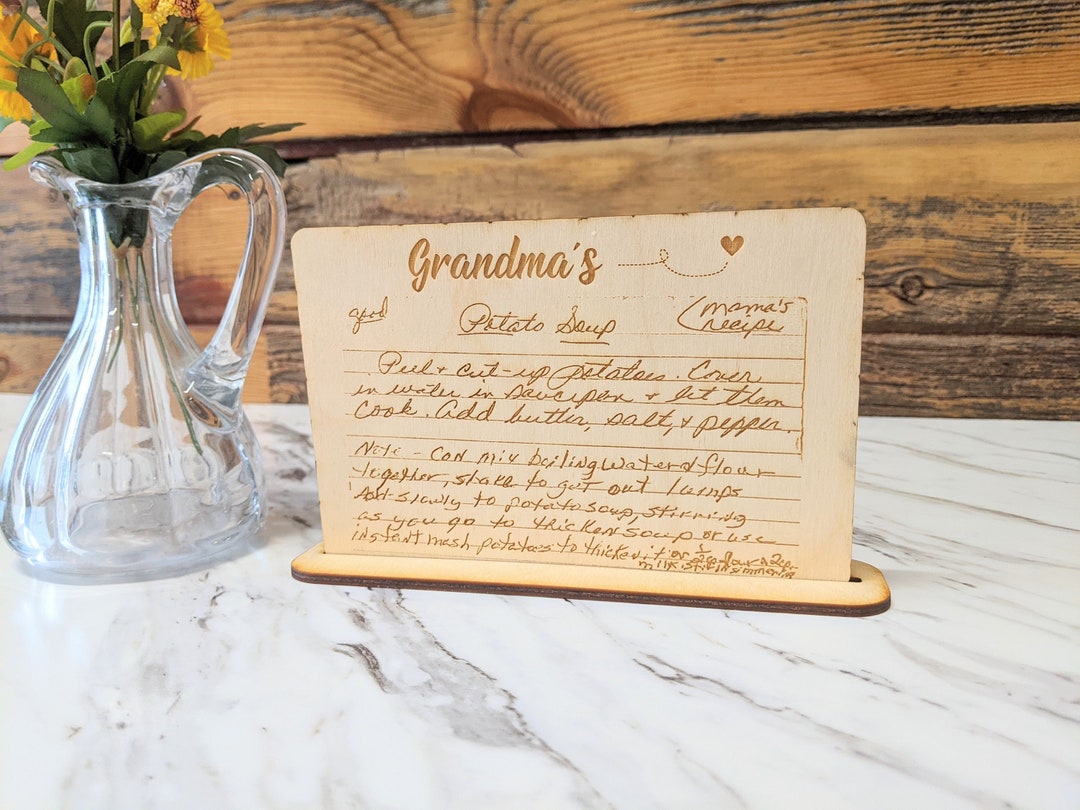 Grandma's
good Potato Soup (mama's
recipe
Peel + cut-up potatoes. Cover
in water in saucepan + let them
cook. Add butter, salt, + pepper.
Note - Can mix boiling water & flour
together, shake to get out lumps
Add slowly to potato soup, stirring
as you go to thicken soup or use
instant mash potatoes to thicken it or 1/2 c flour & 2 c
milk stir in simmering